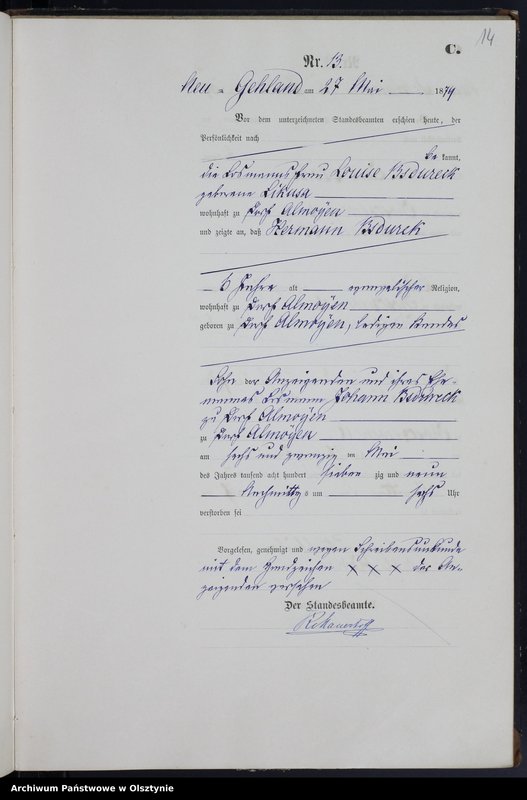 14
C.
Nr. 13.
Neu - Gehland am 27 Mai 1879
Vor dem unterzeichneten Standesbeamten erschien heute, der
Persönlichkeit nach
be kannt,
die Losmannsfrau Louise Bsdureck
geborene Likusa
wohnhaft zu Dorf Almoyen
und zeigte an, daß Hermann Bsdureck
6 Jahre alt evangelischer Religion,
wohnhaft zu Dorf Almoyen
geboren zu Dorf Almoyen, ledigen Standes
Sohn der Anzeigenden und ihres Ehe-
mannes Losmann Johann Bsdureck
zu Dorf Almoyen
zu Dorf Almoyen
am sechs und zwanzig ten Mai
des Jahres tausend acht hundert sieben zig und neun
Nachmittags um sechs Uhr
verstorben sei
Vorgelesen, genehmigt und wegen Schreibensunkunde
mit dem Handzeichen X X X der An-
zeigenden versehen
Der Standesbeamte.
Archiwum Państwowe w Olsztynie